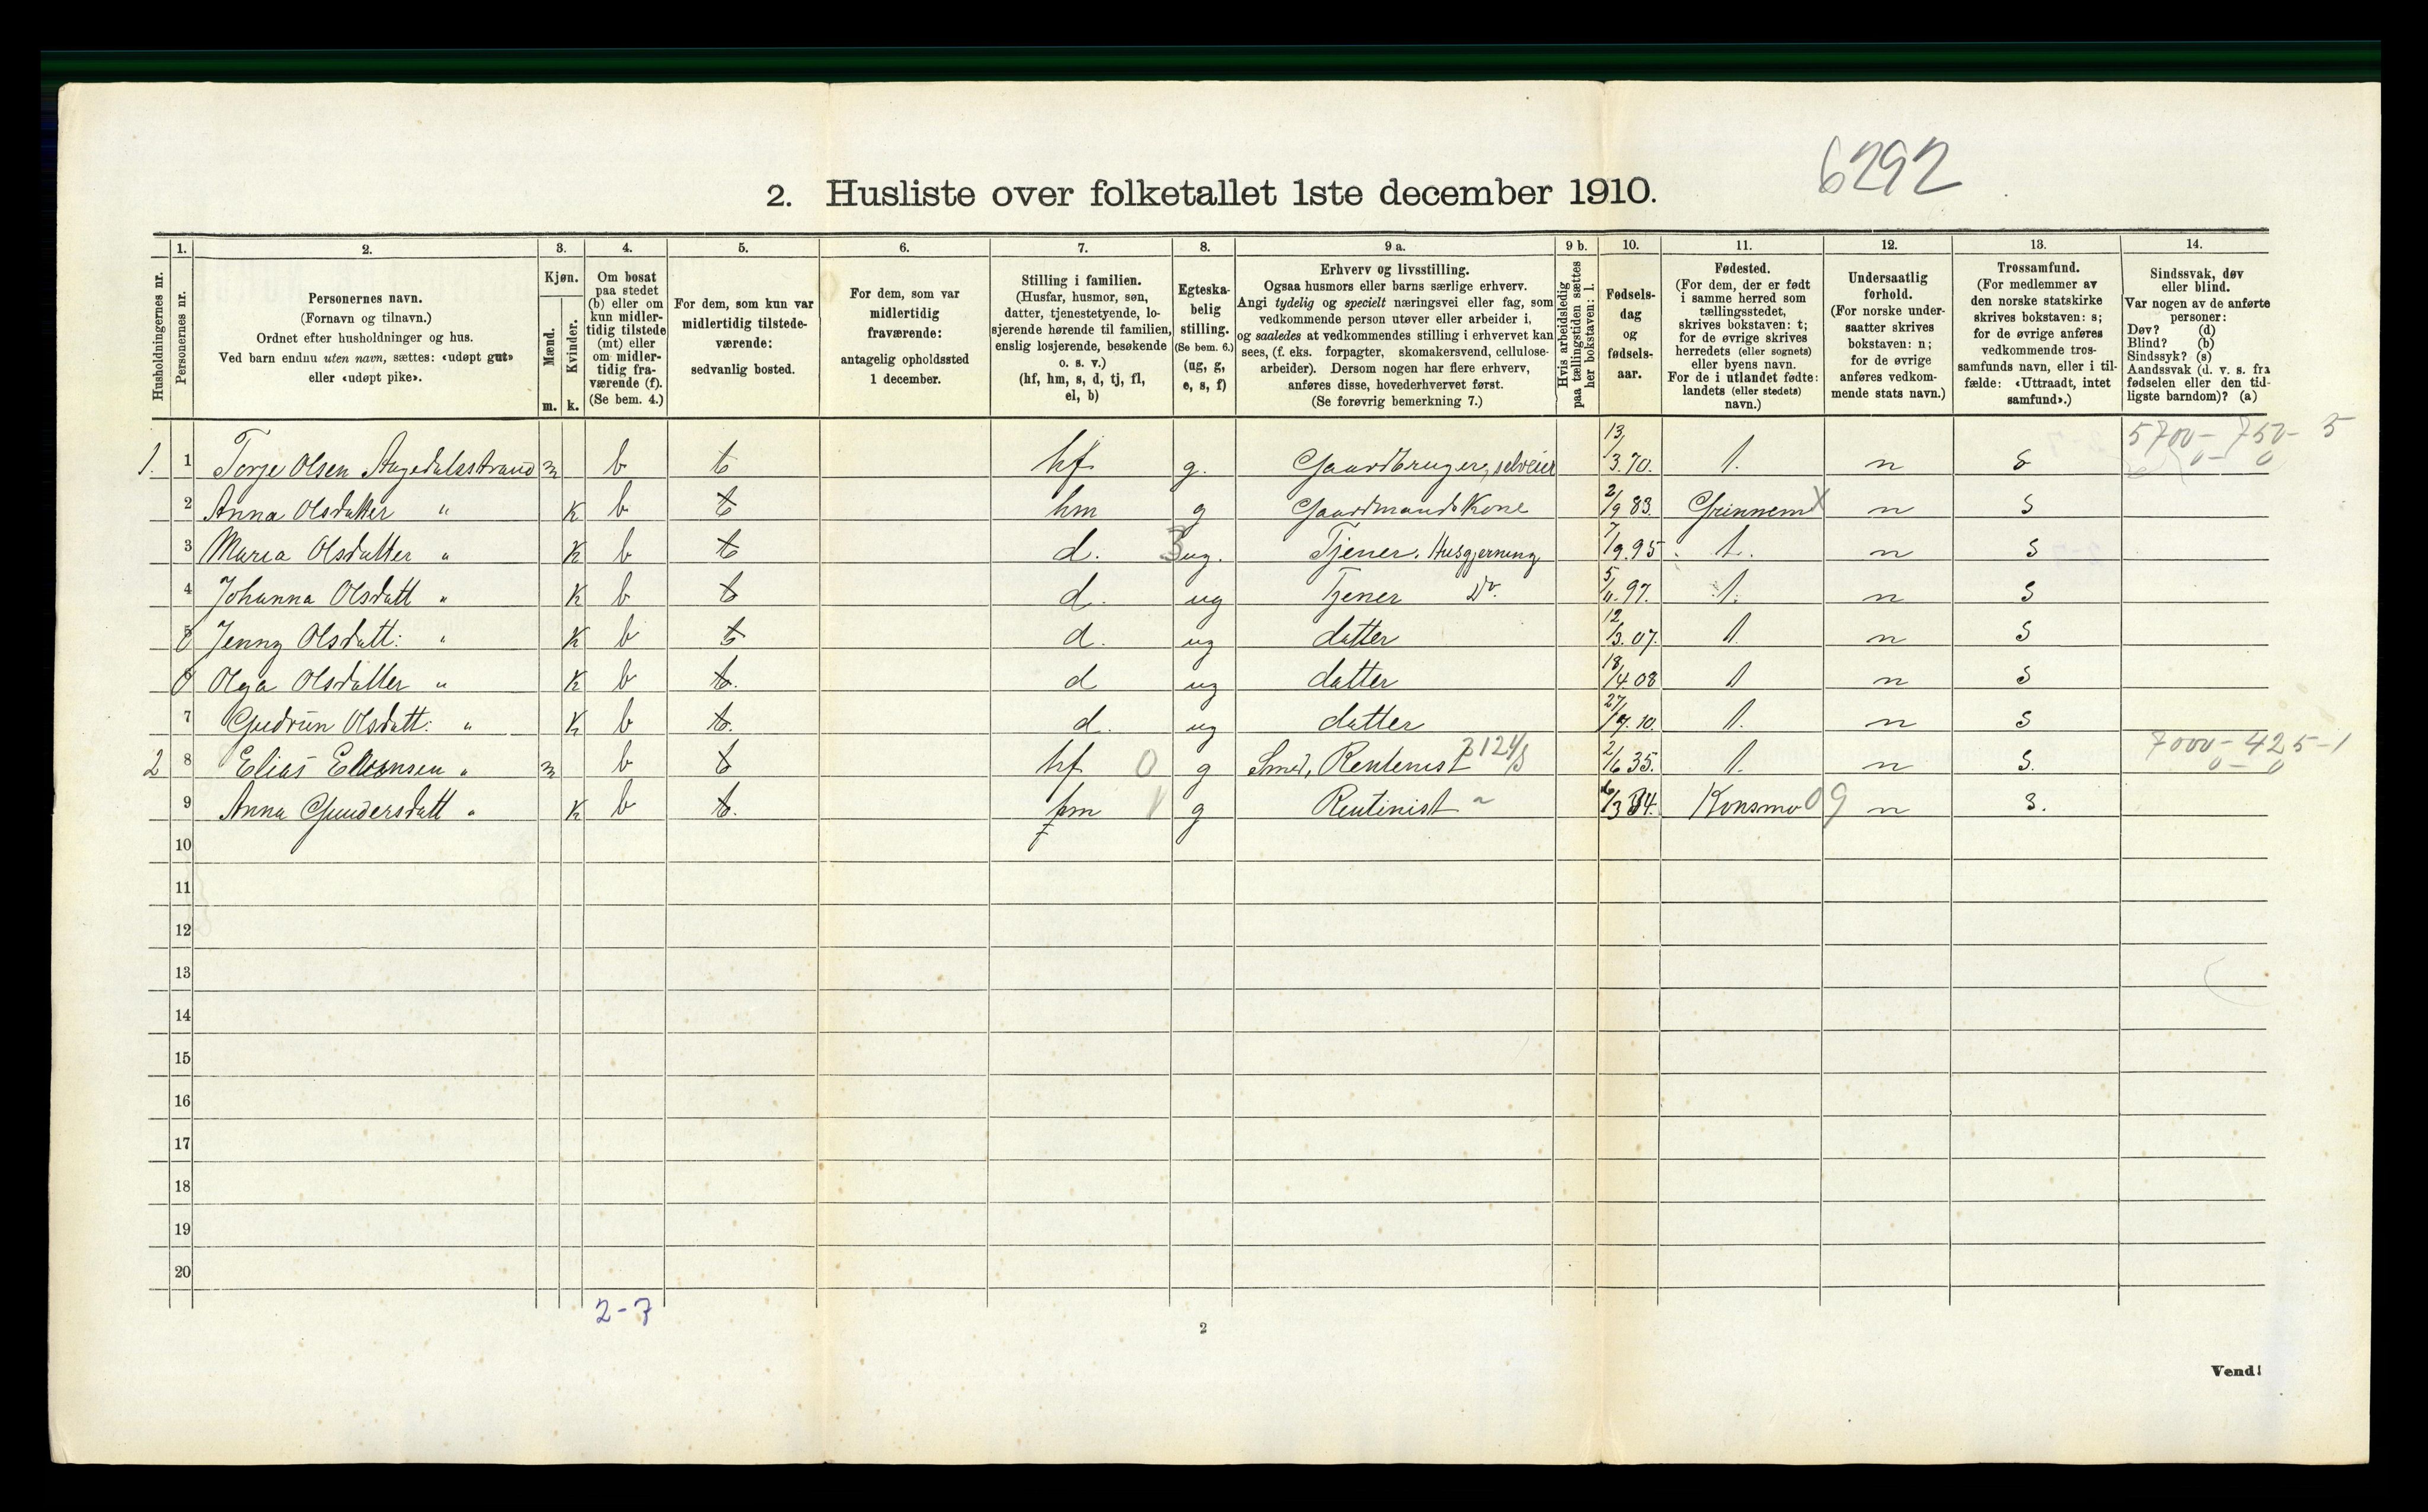 6292
2. Husliste over folketallet 1ste december 1910.
Husholdningernes nr.
1. Personernes nr.
2. Personernes navn.
(Fornavn og tilnavn.)
Ordnet efter husholdninger og hus.
Ved barn endnu uten navn, sættes: «udøpt gut»
eller «udøpt pike».
3. Kjøn.
Mænd. m.
Kvinder. k.
4. Om bosat
paa stedet
(b) eller om
kun midler-
tidig tilstede
(mt) eller
om midler-
tidig fra-
værende (f).
(Se bem. 4.)
5. For dem, som kun var
midlertidig tilstede-
værende:
sedvanlig bosted.
6. For dem, som var
midlertidig
fraværende:
antagelig opholdssted
1 december.
7. Stilling i familien.
(Husfar, husmor, søn,
datter, tjenestetyende, lo-
sjerende hørende til familien,
enslig losjerende, besøkende
o. s. v.)
(hf, hm, s, d, tj, fl,
el, b)
8. Egteska-
belig
stilling.
(Se bem. 6.)
(ug, g,
e, s, f)
9 a. Erhverv og livsstilling.
Ogsaa husmors eller barns særlige erhverv.
Angi tydelig og specielt næringsvei eller fag, som
vedkommende person utøver eller arbeider i,
og saaledes at vedkommendes stilling i erhvervet kan
sees, (f. eks. forpagter, skomakersvend, cellulose-
arbeider). Dersom nogen har flere erhverv,
anføres disse, hovederhvervet først.
(Se forøvrig bemerkning 7.)
9 b. Hvis arbeidsledig
paa tællingstiden sættes
her bokstaven: l.
10. Fødsels-
dag
og
fødsels-
aar.
11. Fødested.
(For dem, der er født
i samme herred som
tællingsstedet,
skrives bokstaven: t;
for de øvrige skrives
herredets (eller sognets)
eller byens navn.
For de i utlandet fødte:
landets (eller stedets)
navn.)
12. Undersaatlig
forhold.
(For norske under-
saatter skrives
bokstaven: n;
for de øvrige
anføres vedkom-
mende stats navn.)
13. Trossamfund.
(For medlemmer av
den norske statskirke
skrives bokstaven: s;
for de øvrige anføres
vedkommende tros-
samfunds navn, eller i til-
fælde: «Uttraadt, intet
samfund».)
14. Sindssvak, døv
eller blind.
Var nogen av de anførte
personer:
Døv? (d)
Blind? (b)
Sindssyk? (s)
Aandssvak (d. v. s. fra
fødselen eller den tid-
ligste barndom)? (a)
5700 - 750 - 5
0 - 0
1. 1 Torje Olsen m b t hf g. Gaardbruger, selveier 13/3.70. t. n s
2 Anna Olsdatter " K b t hm g Gaardmands Kone 2/9 83. X n s
3 Maria Olsdatter " K b t d. 3 ug. Tjener. Husgjerning 7/9.95 t. n s
4 Johanna Olsdatt " K b t d. ug Tjener Do. 5/11.97. t. n s
5 Jenny Olsdatt: " K b t d. ug datter 12/3.07. t. n s
6 Olga Olsdatter " K b t. d ug datter 18/4 08 t n s
7 Gudrun Olsdatt: " K b t. d. ug datter 27/ .10. t. n s
7000 - 425 - 1
0 - 0
2 8 Elias " m b t hf 0 g Smed, Rentenist 2/6 35. t. n s.
9 Anna Gundersdatt " K b t. hm g Rentinist Konsmo 09 n s.
10
11
12
13
14
15
16
17
18
19
20
2-7
2
Vend!